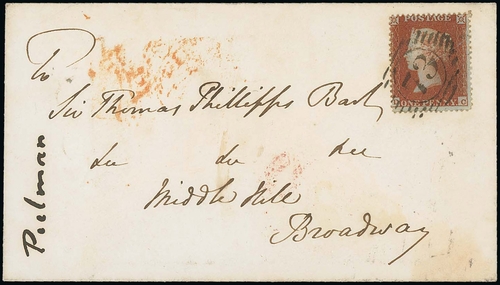 To
Sir Thomas Phillipps Bart
&c &c &c
Middle Hill
Broadway
Pulman
POSTAGE
ONE PENNY